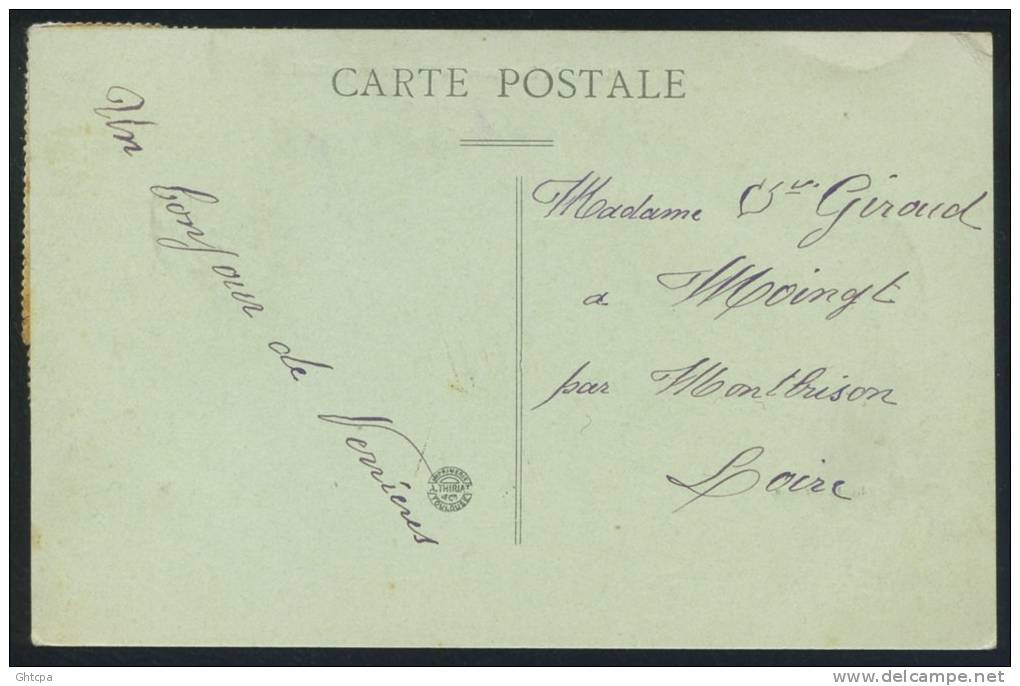 CARTE POSTALE
Un bonjour de Verrières
Madame Vve Giraud
a Moingt
par Montbrison
Loire
IMPRIMERIES
THIRIAT
TOULOUSE
Ghtcpa
www.delcampe.net